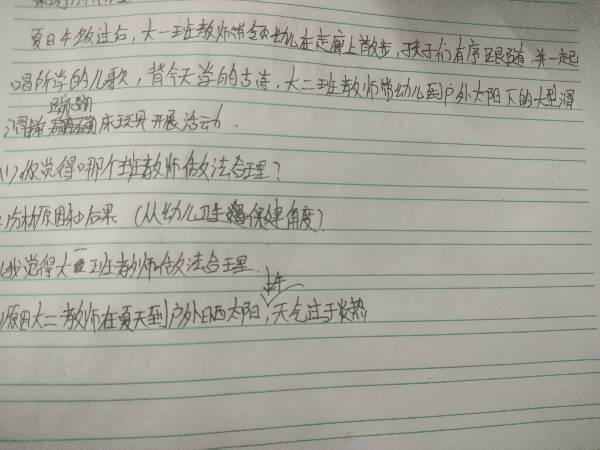 夏日午饭过后，大一班教师带领幼儿在走廊上散步，孩子们有序跟随，并一起
唱所学的儿歌，背今天学的古诗，大二班教师带幼儿到户外太阳下的大型滑
滑梯 蹦蹦床玩具开展活动.
(1)你觉得哪个班教师做法合理?
分析原因和后果 (从幼儿卫生保健角度)
我觉得大一班教师做法合理.
原因大二教师在夏天中午到户外晒太阳，天气过于炎热